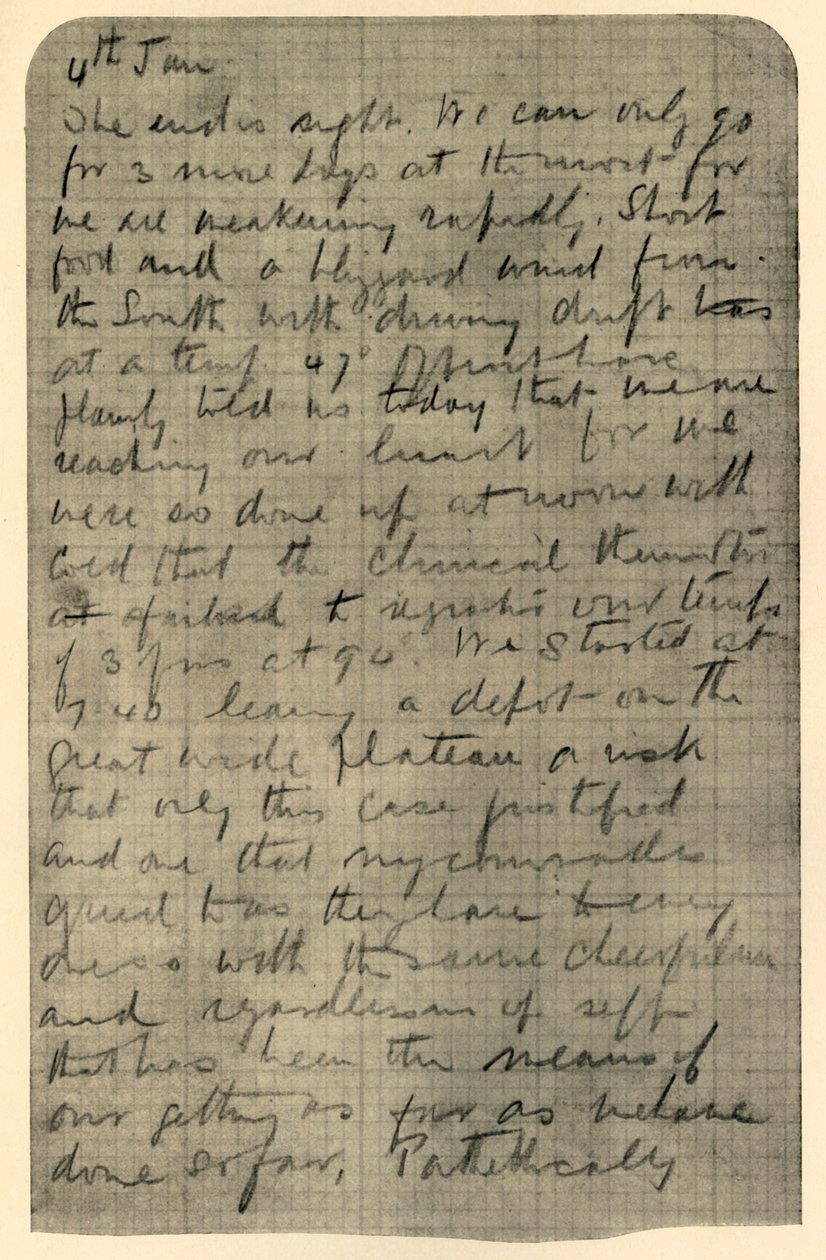 4th Jan.
The end is nigh. We can only go
for 3 more days at the most for
we are weakening rapidly. Short
food and a blizzard wind from
the South with driving drift
at a temp. 47°
plainly told us today that we are
reaching our limit for we
were so done up at noon with
cold that the clinical thermometer
failed to register our temps
of 3 of us at 94°. We started at
7 40 leaving a depot on the
great wide plateau a risk
that only this case justified
and one that my comrades
agreed to as they have to every
one so with the same cheerfulness
and regardlessness of self
that has been the means of
our getting as far as we have
done so far. Pathetically